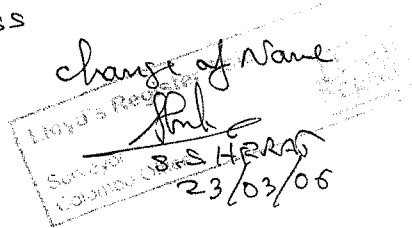 ss
change of Name
Lloyd's Register
S.S HERAT
Surveyor
Colombo Office
23/03/06